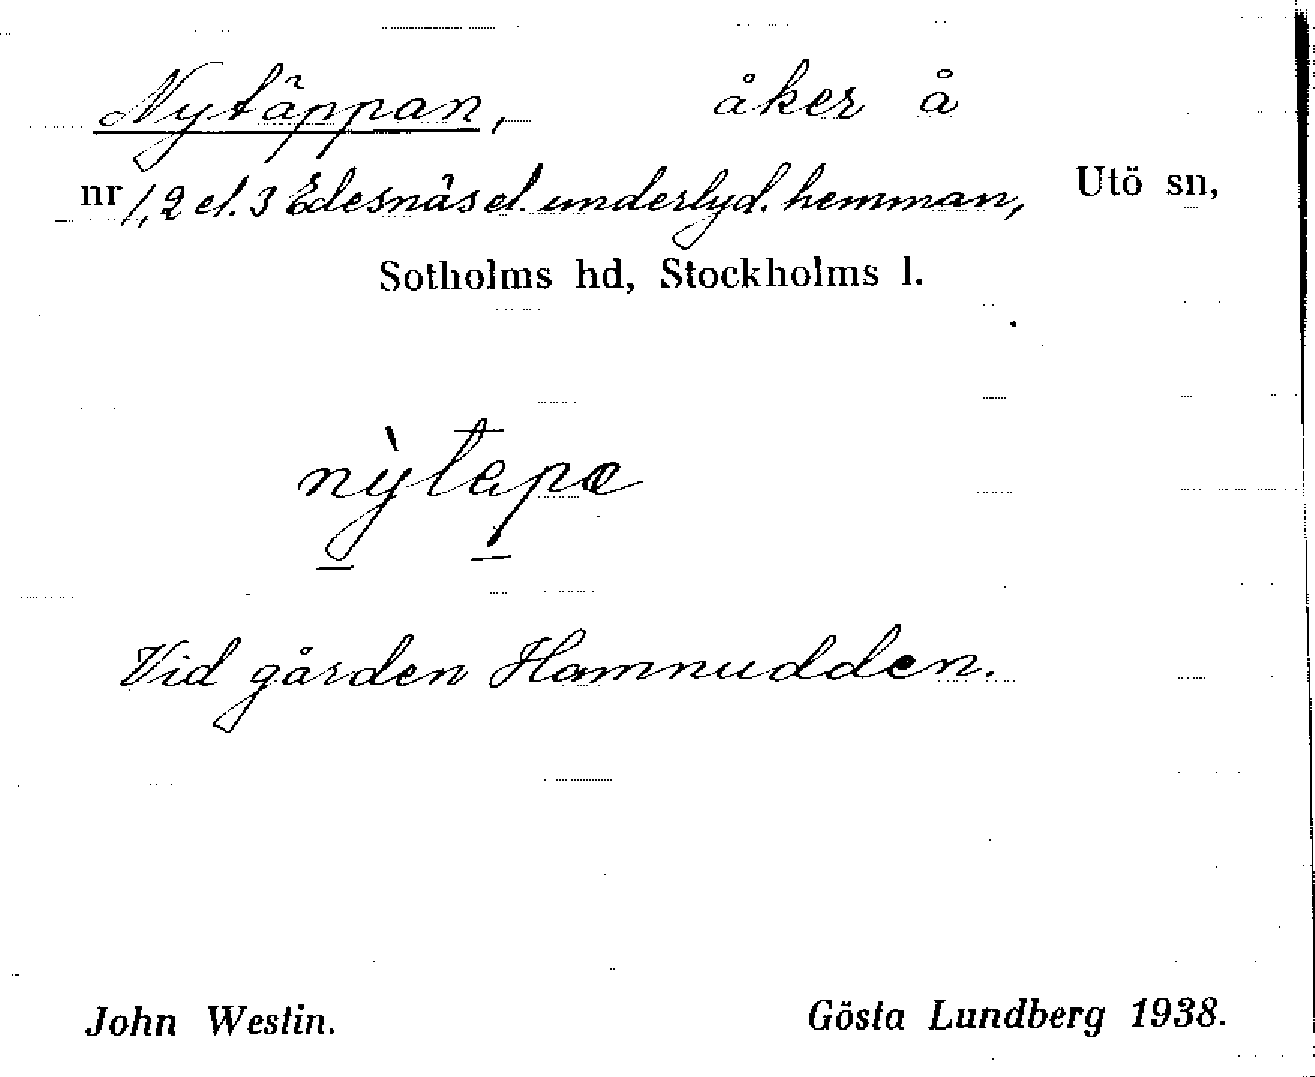 Nytäppan, åker å
nr 1, 2 el. 3 Edesnäs el. underlyd. hemman, Utö sn,
Sotholms hd, Stockholms l.
nỳtepα
Vid gården Hamnudden.
John Westin. Gösta Lundberg 1938.